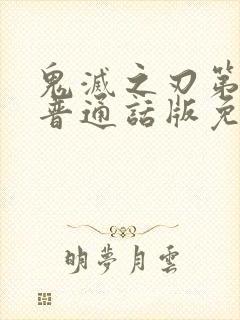 鬼滅之刃第
普通話版免
明夢月雲